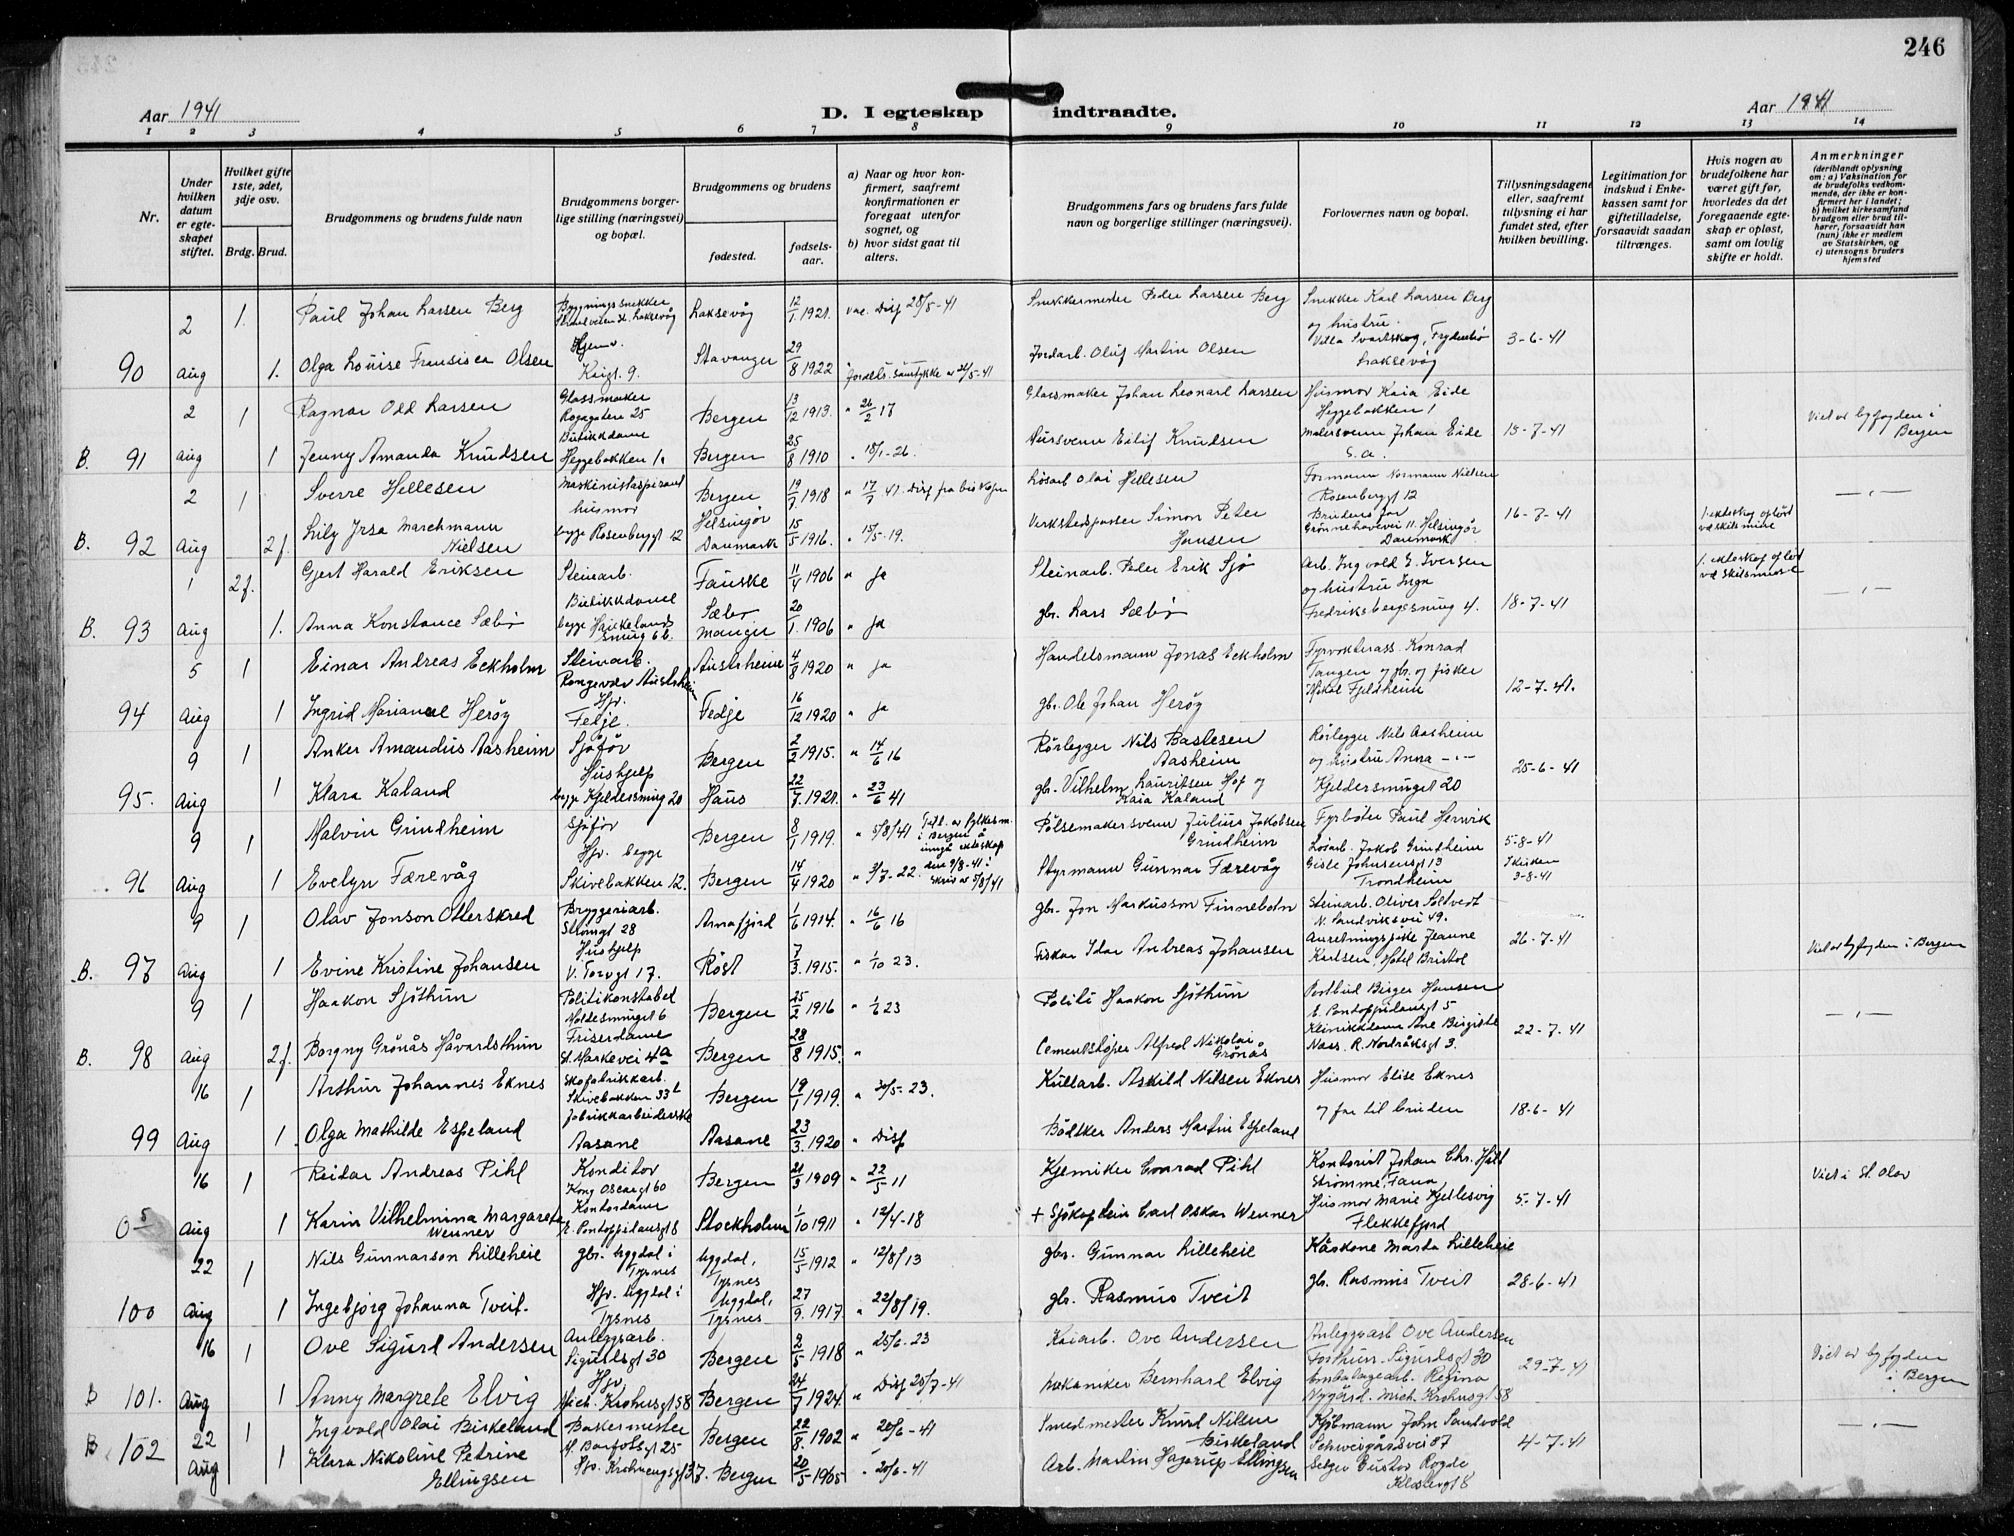 246
Aar 1941
D. I egteskap indtraadte.
Aar 1941
1 2 3 4 5 6 7 8 9 10 11 12 13 14
Nr.
Under hvilken datum er egteskapet stiftet.
Hvilket gifte 1ste, 2det, 3dje osv.
Brdg. Brud.
Brudgommens og brudens fulde navn
Brudgommens borgerlige stilling (næringsvei) og bopæl.
Brudgommens og brudens
fødested.
fødselsaar.
a) Naar og hvor konfirmert, saafremt konfirmationen er foregaat utenfor sognet, og
b) hvor sidst gaat til alters.
Brudgommens fars og brudens fars fulde navn og borgerlige stillinger (næringsvei).
Forlovernes navn og bopæl.
Tillysningsdagene eller, saafremt tillysning ei har fundet sted, efter hvilken bevilling.
Legitimation for indskud i Enkekassen samt for giftetilladelse, forsaavidt saadan tiltrænges.
Hvis nogen av brudefolkene har været gift før, hvorledes da det foregaaende egteskap er opløst, samt om lovlig skifte er holdt.
Anmerkninger (deriblandt oplysning om: a) Vaksination for de brudefolks vedkommende, der ikke er konfirmert her i landet; b) hvilket kirkesamfund brudgom eller brud tilhører, forsaavidt han (hun) ikke er medlem av Statskirken, og c) utensogns bruders hjemsted
2 1. Paul Johan Larsen Berg Bygningssnekker Laksevåg 12/1 1921. vac. Disp 28/5-41 Snekkermester Peder Larsen Berg Snekker Karl Larsen Berg og hustru
90 Aug 1. Olga Louise Fransisca Olsen Hjemv. Kaigt. 9. Stavanger 29/8 1922 Jordarb. Oluf Martin Olsen Laksevåg 3-6-41
2 1 Ragnar Odd Larsen Glassmaker Bergen 13/12 1913. " 26/2 17 Glassmaker Johan Leonard Larsen Husmor Kaia Eide Heggebakken 1
B. 91 Aug 1 Jenny Amanda Knudsen Butikkdame Heggebakken 1. Bergen 25/8 1910 " 18/1-26. Eilif Knudsen Malersvenn Johan Eide s.a. 15-7-41 Viet av byfogden i Bergen
2 1 Sverre Hellesen Maskinistaspirant Bergen 19/7 1918 " 17/7 41. Disp fra biskopen Løsarb Olai Hellesen Formann Normann Nielsen Rosenbergt 12
B. 92 Aug 2 f. Lily Irsa Marchmann Nielsen husmor begge Rosenbergt 12 Helsingør Danmark 15/5 1916. " 15/5-19. Verkstedspasser Simon Peter Hansen Brudens far Grønnehavevei 11. Helsingør Danmark 16-7-41 1. ekteskap opløst ved skilsmisse — " —
1 2 f. Gjert Harald Eriksen Steinarb. Fauske 11/4 1906 " ja Steinarb. Peder Erik Sjø Arb. Ingvald E. Iversen og hustru Inga 1. ekteskap opløst ved skilsmisse
B. 93 Aug 1. Anna Konstance Sæbø Butikkdame begge Haukelandsmug 6b. Sæbø Manger 20/1. 1906 " ja gbr. Lars Sæbø Fredriksbergsmug 4. 18-7-41 — " —
5 1 Einar Andreas Eckholm Steinarb. Rongevær Austrheim Austrheim 4/8 1920 " ja Handelsmann Jonas Eckholm Fyrvokterass. Konrad Tangen og gbr. og fisker
94 Aug 1 Ingrid Marianne Herøy Hjv. Fedje. Fedje 16/12 1920 " ja gbr. Ole Johan Herøy Mikal Fjeldheim 12-7-41.
9 1 Anker Amandus Aasheim Sjåfør Bergen 2/2 1915. " 14/6 16 Rørlegger Nils Baslesen Aasheim Rørlegger Nils Aasheim og hustru Anna — " —
95. Aug 1 Klara Kaland Hushjelp begge Kjeldersmug 20 Haus 22/7. 1921. " 23/6 41 gb. Vilhelm Lauritsen Hop og Kaia Kaland Kjeldersmuget 20 25-6-41
9 1 Malvin Grindheim Sjåfør Bergen 8/1 1919. " 5/8/41 Till. av fylkesm. i Bergen å inngå ekteskap den 9/8-41: skriv av 5/8/41 Pølsemakersvenn Julius Jakobsen Grindheim Fyrbøter Paul Hervik Løsarb. Jakob Grindheim 5-8-41
96 Aug 1 Evelyn Færevåg Hjv. begge Skivebakken 12. Bergen 14/4 1920 " 3/7-22. Styrmann Gunnar Færevåg Gisle Johnsensgt 13 Trondheim I kirken 3-8-41
9 1 Olav Jonson Otterskred Bryggeriarb. Strømgt 28 Arnafjord 1/6 1914. " 16/6 16 gbr. Jon Markusson Finnebotn Steinarb. Oliver Soltvedt N. Sandviksvei 49.
B. 97 Aug 1 Evine Kristine Johansen Hushjelp V. Torvgt 17. Røst 7/3. 1915. " 1/10 23. Fisker Idar Andreas Johansen Anretningspike Jeanne Karlsen, Hotel Bristol 26-7-41 Viet av byfogden i Bergen
9 1 Haakon Sjøthun Politikonstabel Holdesmuget 6 Bergen 25/2 1916 " 1/6 23 Politi Haakon Sjøthun Postbud Birger Hansen E. Pontoppidansgt 5
B. 98 Aug 2 f. Borgny Grønås Håvardsthun Friserdame St. Markevei 4a Bergen 28/8 1915. " Cementstøper Alfred Nikolai Grønås Klinikkdame Ane Birgitte Næss. R. Nordråksgt 3. 22-7-41 — " —
16 1 Arthur Johannes Eknes Skofabrikkarb. Skivebakken 33b Bergen 19/1 1919. " 30/5-23. Kullarb. Askild Nilsen Eknes Husmor Elise Eknes
99 Aug 1. Olga Mathilde Espeland Fabrikkarbeiderske Aasane Aasane 23/3. 1920 " Disp Bødtker Anders Martin Espeland og far til bruden 18-6-41
16 1 Reidar Andreas Pihl Konditor Kong Oscarsgt 60 Bergen 21/9 1909 " 22/5 11 Kjemiker Conrad Pihl Kontorist Johan Chr. Holt Strømme, Fana Viet i St. Olav
0 5 Aug 1 Karin Vilhelmina Margareta Wenner Kontordame E. Pontoppidansgt 8 Stockholm 1/10 1911 " 12/4-18 + Sjökaptein Carl Oskar Wenner Husmor Marie Kjellesvig Flekkefjord 5-7-41
22 1 Nils Gunnarson Lilleheie gbr. Uggdal i Tysnes Uggdal, Tysnes 15/5 1912 " 12/8/13 gbr. Gunnar Lilleheie Kårkone Marta Lilleheie
100 Aug 1 Ingebjørg Johanna Tveit. Hjv. Uggdal i Tysnes Uggdal, Tysnes 27/9. 1917. " 22/8/19. gbr. Rasmus Tveit gb. Rasmus Tveit 28-6-41
16 1 Ove Sigurd Andersen Anleggsarb. Sigurdsgt 30 Bergen 2/5 1918 " 25/6-23 Kaiarb. Ove Andersen Anleggsarb Ove Andersen Sigurdsgt 30
B 101. Aug 1 Anny Margrete Elvig Hjv. Mich. Krohnsgt 58 Bergen 24/7 1924. " Disp 25/7-41 Mekaniker Bernhard Elvig Emballagearb. Regina Nygård. Mich. Krohnsgt 58 29-7-41 Viet av byfogden i Bergen
22 1 Ingvald Olai Birkeland Bakermester Bergen 22/8. 1902 " 20/6-41 Smedmester Knud Nilsen Birkeland Kjøbmann John Sandvold Schweigårdsvei 87
B 102 Aug 1 Klara Nikoline Petrine Ellingsen Hjv. Krohnengst 37. Bergen 20/5 1905 " 20/6-41 Arb. Martin Hagerup Ellingsen Selger Gustav Rogde Klostergt 8 4-7-41 — " —